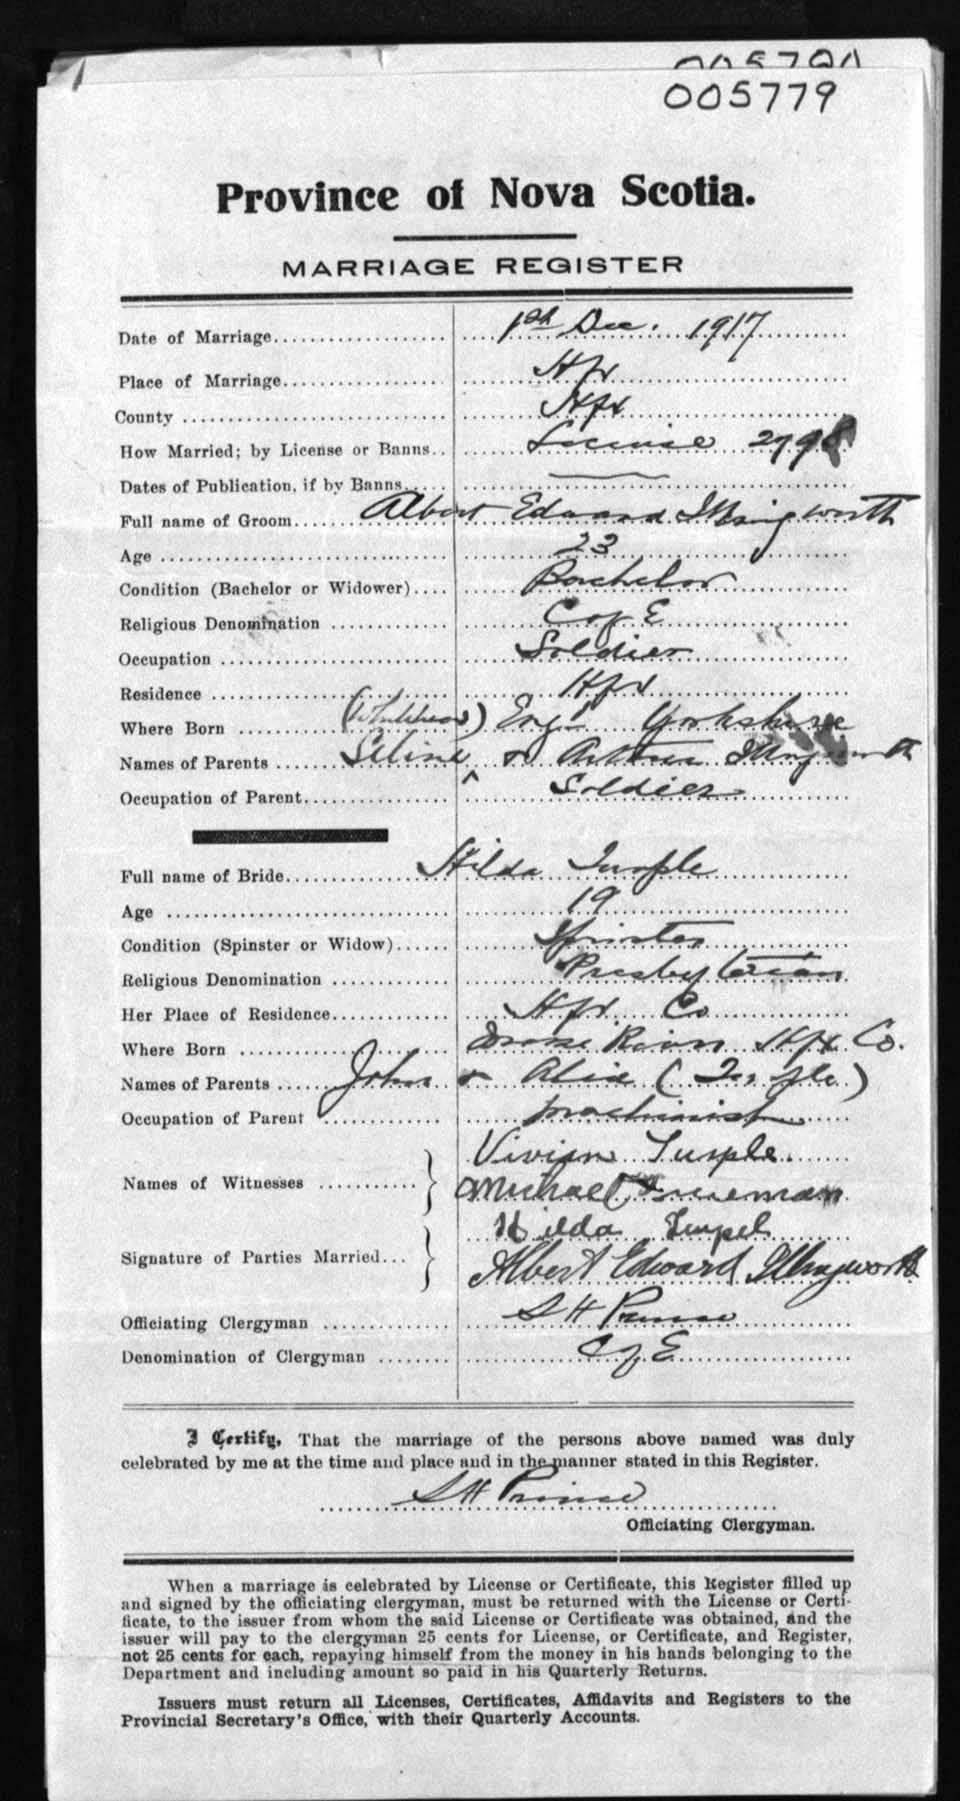 005779
Province of Nova Scotia.
MARRIAGE REGISTER
Date of Marriage 1st Dec. 1917
Place of Marriage Hfx
County Hfx
How Married; by License or Banns License 2798
Dates of Publication, if by Banns
Full name of Groom Albert Edward Illingworth
Age 23
Condition (Bachelor or Widower) Bachelor
Religious Denomination C of E
Occupation Soldier
Residence Hfx
Where Born Eng'd Yorkshire
Names of Parents Seline (Whitehead) & Arthur Illingworth
Occupation of Parent Soldier
Full name of Bride Hilda Turple
Age 19
Condition (Spinster or Widow) Spinster
Religious Denomination Presbyterian
Her Place of Residence Hfx. Co
Where Born Hfx Co.
Names of Parents John & Alice (Turple)
Occupation of Parent machinist
Names of Witnesses Vivian Turple
Michael Freeman
Signature of Parties Married Hilda Turpel
Albert Edward Illingworth
Officiating Clergyman S H Prince
Denomination of Clergyman C of E
I Certify, That the marriage of the persons above named was duly
celebrated by me at the time and place and in the manner stated in this Register.
S H Prince
Officiating Clergyman.
When a marriage is celebrated by License or Certificate, this Register filled up
and signed by the officiating clergyman, must be returned with the License or Certi-
ficate, to the issuer from whom the said License or Certificate was obtained, and the
issuer will pay to the clergyman 25 cents for License, or Certificate, and Register,
not 25 cents for each, repaying himself from the money in his hands belonging to the
Department and including amount so paid in his Quarterly Returns.
Issuers must return all Licenses, Certificates, Affidavits and Registers to the
Provincial Secretary's Office, with their Quarterly Accounts.